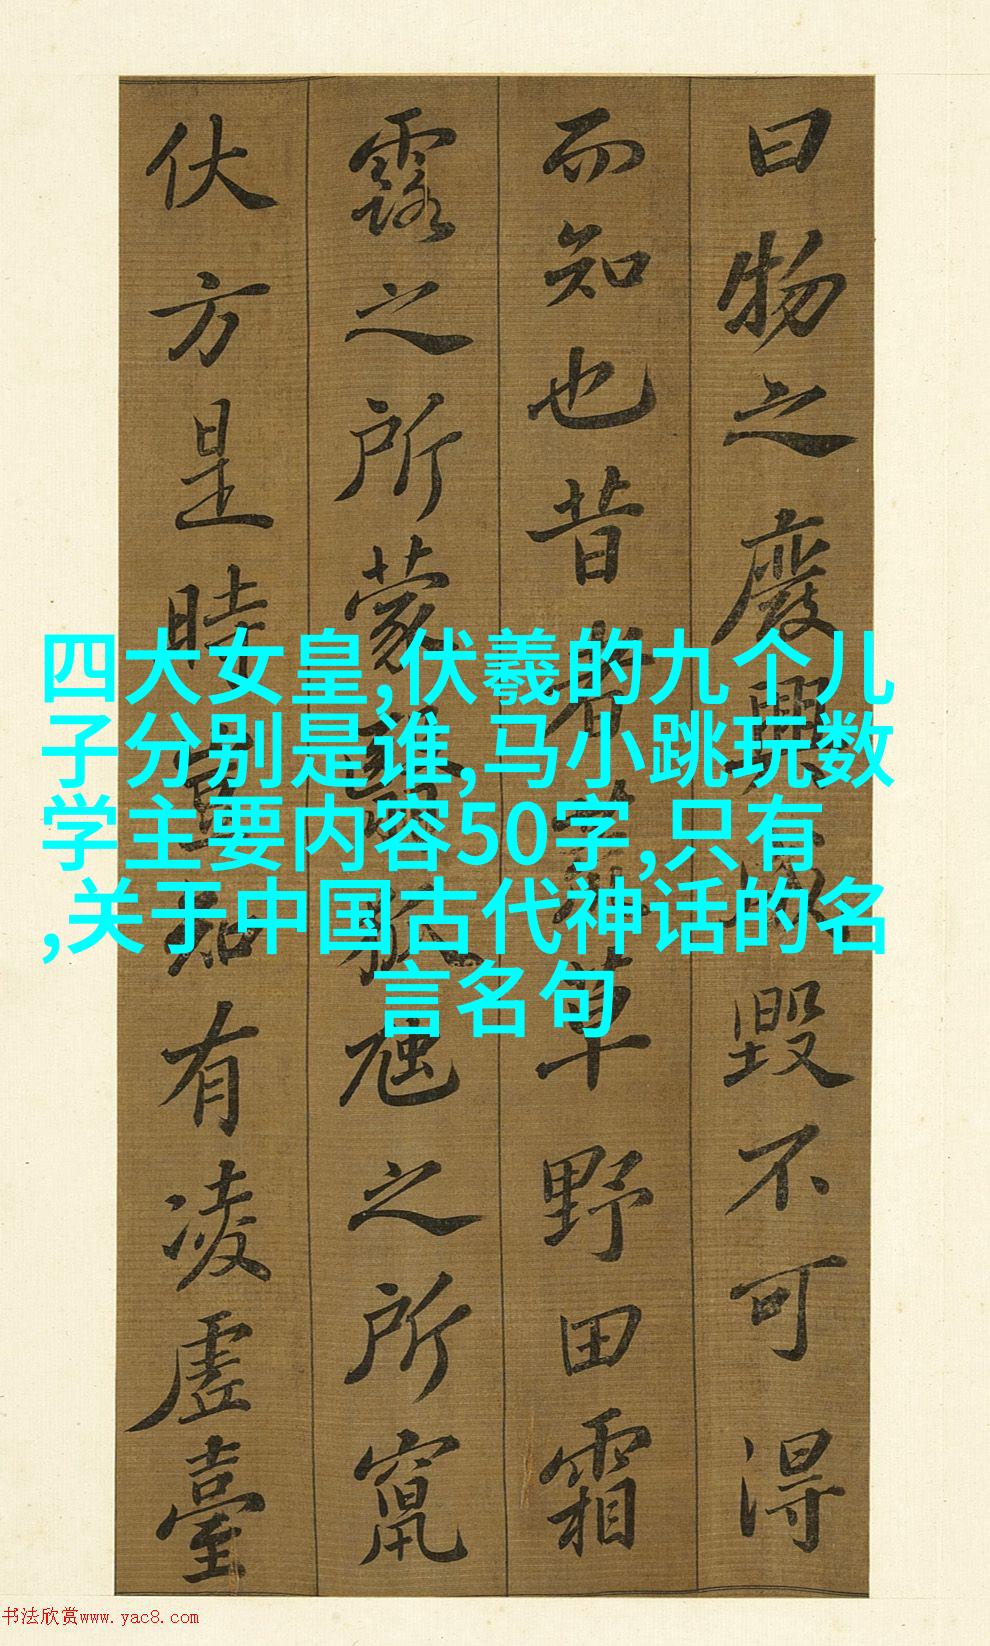 曰物之廢興成毀不可得
而知也昔者荒草野田霜
露之所蒙翳狐虺之所竄
伏方是時豈知有凌虛臺
四大女皇,伏羲的九个儿
子分别是谁,马小跳玩数
学主要内容50字,只有
,关于中国古代神话的名
言名句
书法欣赏www.yac8.com